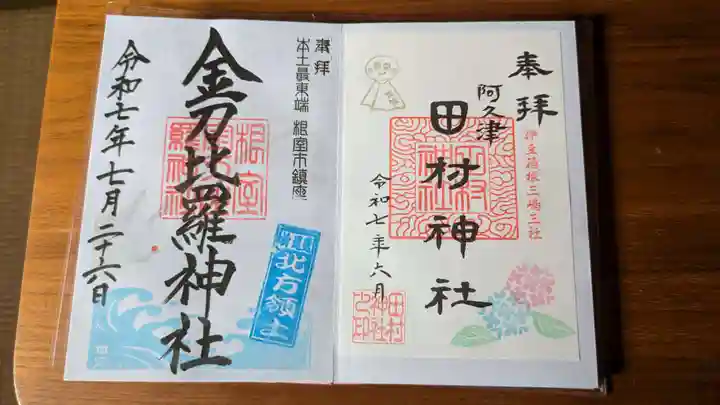 奉拝
阿久津
田村神社
伊豆箱根三嶋三社
令和七年六月
田村
神社
之印
奉拝
本土最東端 根室市鎮座
金刀比羅神社
令和七年七月二十六日
北方領土